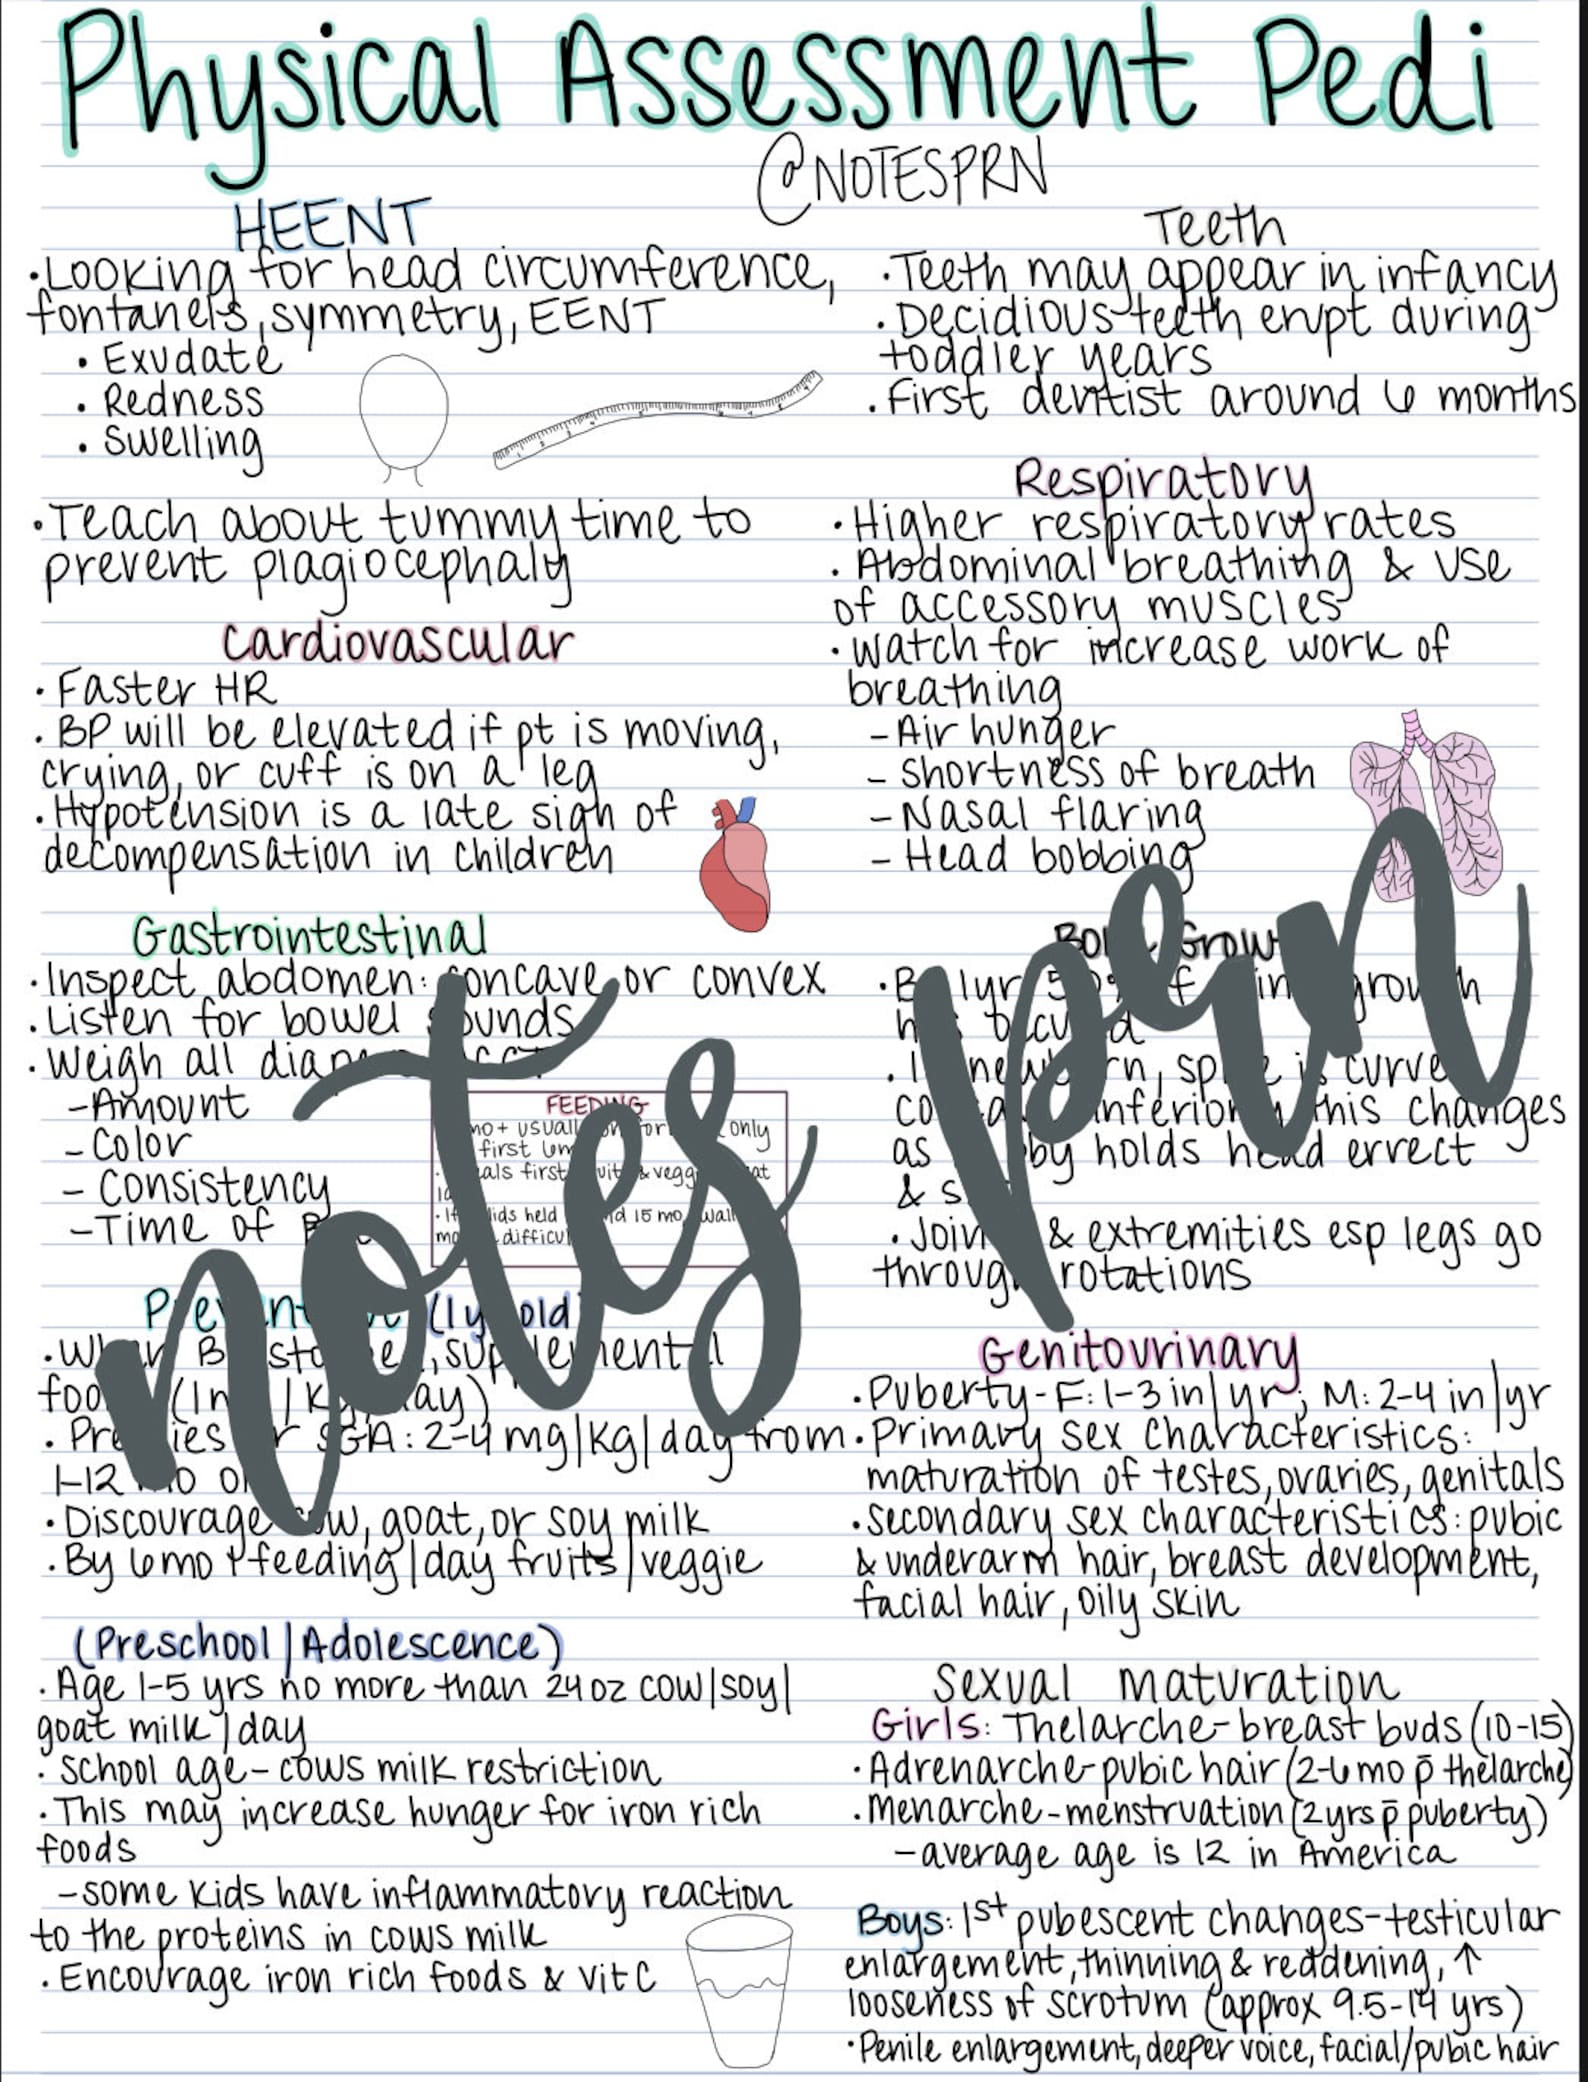 Physical Assessment Pedi
@NOTESPRN
HEENT
·Looking for head circumference,
fontanels, symmetry, EENT
· Exudate
· Redness
· Swelling
·Teach about tummy time to
prevent plagiocephaly
Cardiovascular
· Faster HR
· BP will be elevated if pt is moving,
crying, or cuff is on a leg
·Hypotension is a late sign of
decompensation in children
Gastrointestinal
·Inspect abdomen: concave or convex
·Listen for bowel sounds
·Weigh all
-Amount
-Color
- Consistency
-Time of
FEEDING
mo+ usually only
first 6m
first & vegg
held 15 mo
difficu
(1y old)
supplemental
foo
: 2-4 mg/kg/day from
1-12 mo
·Discourage cow, goat, or soy milk
·By 6mo 1 feeding/day fruits/veggie
(Preschool/Adolescence)
·Age 1-5 yrs no more than 24oz cow/soy/
goat milk/day
· School age-cows milk restriction
·This may increase hunger for iron rich
foods
-some kids have inflammatory reaction
to the proteins in cows milk
·Encourage iron rich foods & vit C
Teeth
·Teeth may appear in infancy
·Decidious teeth erupt during
toddler years
·First dentist around 6 months
Respiratory
·Higher respiratory rates
·Abdominal breathing & use
of accessory muscles
·Watch for increase work of
breathing
-Air hunger
- shortness of breath
-Nasal flaring
- Head bobbing
Grow
1yr growth
newborn, spine is curve
inferiorly this changes
as baby holds head errect
&
·Join & extremities esp legs go
through rotations
Genitourinary
·Puberty-F: 1-3 in/yr; M: 2-4 in/yr
·Primary sex characteristics:
maturation of testes, ovaries, genitals
·Secondary sex characteristics: pubic
& underarm hair, breast development,
facial hair, oily skin
Sexual maturation
Girls: Thelarche-breast buds (10-15)
·Adrenarche-pubic hair (2-6mo p̄ thelarche)
·Menarche-menstruation (2yrs p̄ puberty)
-average age is 12 in America
Boys: 1st pubescent changes-testicular
enlargement, thinning & reddening, ↑
looseness of scrotum (approx 9.5-14 yrs)
·Penile enlargement, deeper voice, facial/pubic hair
notes prn